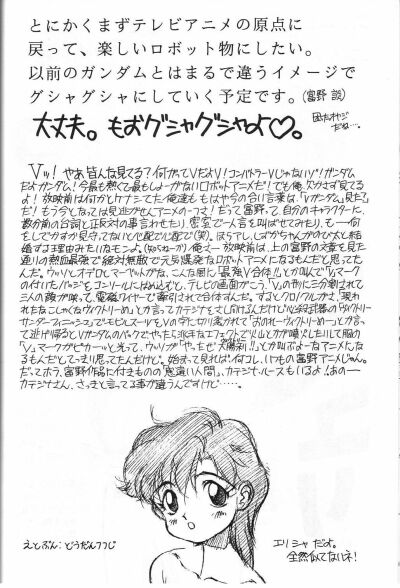 とにかくまずテレビアニメの原点に
戻って、楽しいロボット物にしたい。
以前のガンダムとはまるで違うイメージで
グシャグシャにしていく予定です。(富野 談)
大丈夫。もおグシャグシャよ♡。
困たオヤジだね…。
Vッ! やあ皆んな見てる? 何がってVだよV! コンバトラーVじゃないゾ! ガンダム
だよガンダム! 今最も熱くて最もしょーがないロボットアニメだ! でも俺、欠かさず見てる
よ! 放映前は何かとケナしてた俺達も もはや今の合い言葉は、「Vガンダム見た?」
だ! もう今となっては見逃がせんアニメの一つさ! だって富野って、自分のキャラクターに、
数分前の台詞と正反対の事言わせたり、密室で一人言を叫ばせてみたり、もー何
をしでかすか見守ってないと心配で心配で(笑)。
の付いたバッジをコンソールにはめこむと、テレビの画面がこう、「V」の形に三分割されて
三人の顔が映って、電磁ワイヤーで牽引されて合体すんだ。するとクロノクルがさ、「現わ
れたなこしゃくなヴィクトリーめ」とか言ってカテジナをさし向けるんだけど
「V」マークがピカーッと光って、ウッソが「やったぜ 大勝利!!」とか叫ぶよーなアニメにな
るもんだとてっきり思ってたんだけど。始まって見れば何コレ、いつもの富野アニメじゃん。
だってホラ、富野作品に付きものの「勘違い人間」、カテジナ・ルースもいるよ! あのー
カテジナさん、さっきと言ってる事が違うんですけど……。
えとぶん:どうだんつつじ
エリシャ だよ。
全然似てないネ!